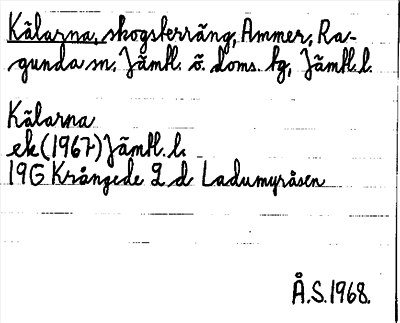 Kälarna, skogsterräng, Ammer, Ra-
gunda sn, Jämtl. ö. doms. tg, Jämtl. l.
Kälarna
ek (1967) Jämtl. l.
19G Krångede 9 d Ladumyråsen
Å.S. 1968.